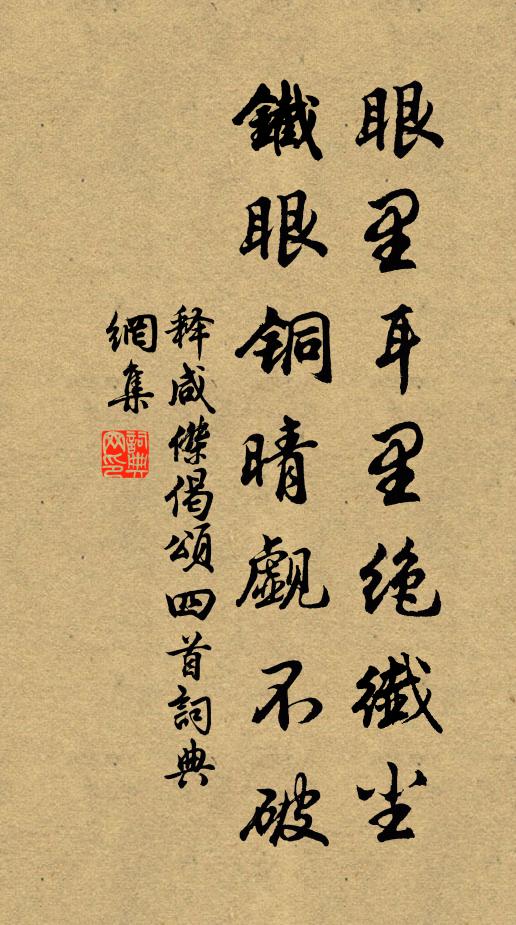 眼里耳里绝纖尘
鐵眼銅晴覷不破
释咸傑偈頌四首詞典
網集
詞典网印